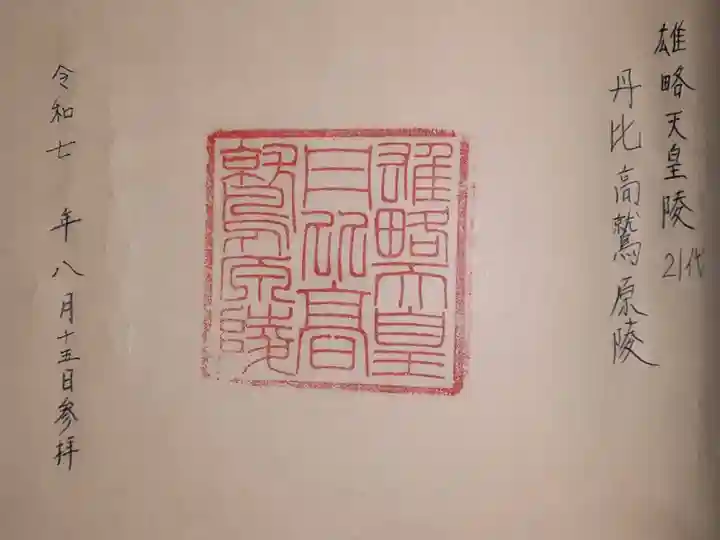 雄略天皇陵 21代
丹比高鷲原陵
雄略天皇
丹比高
鷲原陵
令和七年八月十五日参拝